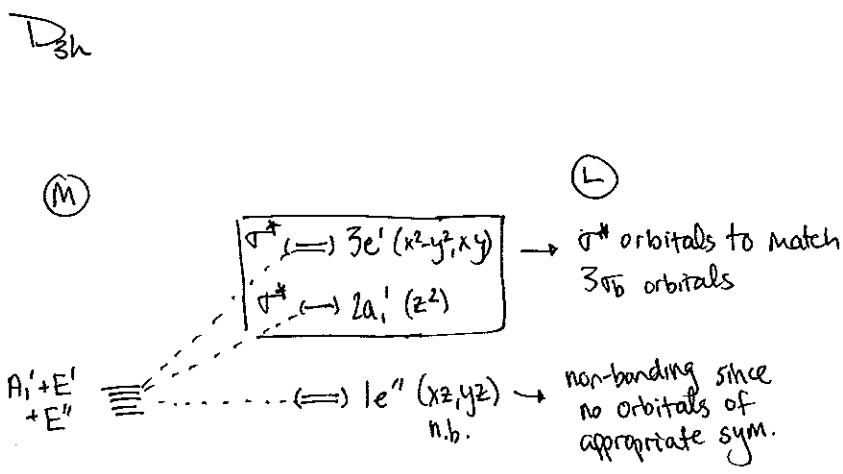 D3h
M
L
σ* (=) 3e' (x²-y², xy) → σ* orbitals to match
3σb orbitals
σ* (-) 2a₁' (z²)
A₁' + E'
+ E"
(=) 1e" (xz, yz) → non-bonding since
n.b.
no orbitals of
appropriate sym.